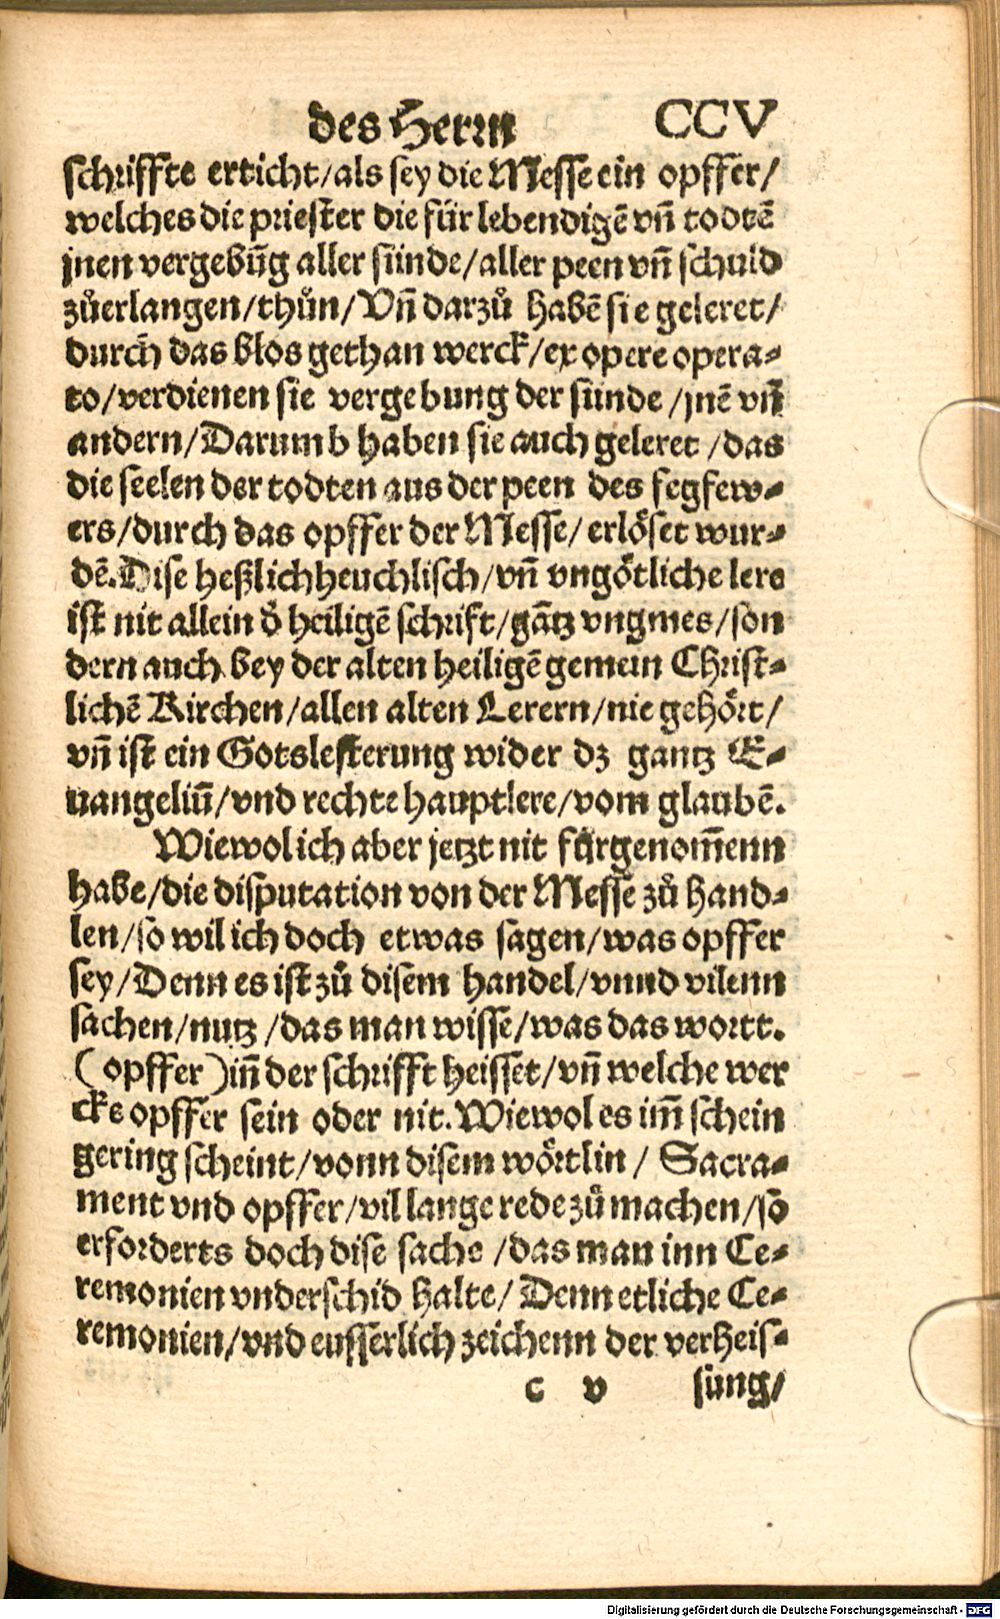 des Herrn CCV
schriffte erticht/als sey die Messe ein opffer/
welches die priester die für lebendigē vn̄ todtē
jnen vergebūg aller sünde/aller peen vn̄ schuld
zůerlangen/thůn/Vn̄ darzů habē sie geleret/
durch das blos gethan werck/ex opere opera-
to/verdienen sie vergebung der sünde/jnē vn̄
andern/Darumb haben sie auch geleret/das
die seelen der todten aus der peen des fegfew-
ers/durch das opffer der Messe/erlöset wur-
dē. Dise heßlich heuchlisch/vn̄ vngötliche lere
ist nit allein d̄ heiligē schrift/gātz vngmes/son
dern auch bey der alten heiligē gemein Christ-
lichē Kirchen/allen alten Lerern/nie gehört/
vn̄ ist ein Gotslesterung wider dz gantz E-
uangeliū/vnd rechte hauptlere/vom glaubē.
Wiewol ich aber jetzt nit fürgenom̄enn
habe/die disputation von der Messe zů hand-
len/so wil ich doch etwas sagen/was opffer
sey/Denn es ist zů disem handel/vnnd vilenn
sachen/nutz/das man wisse/was das wortt.
(opffer) in̄ der schrifft heisset/vn̄ welche wer
cke opffer sein oder nit. Wiewol es im̄ schein
gering scheint/vonn disem wörtlin/ Sacra-
ment vnd opffer/vil lange rede zů machen/so
erforderts doch dise sache/das man inn Ce-
remonien vnderschid halte/Denn etliche Ce-
remonien/vnd eusserlich zeichenn der verheis-
c v sung/
Digitalisierung gefördert durch die Deutsche Forschungsgemeinschaft - DFG